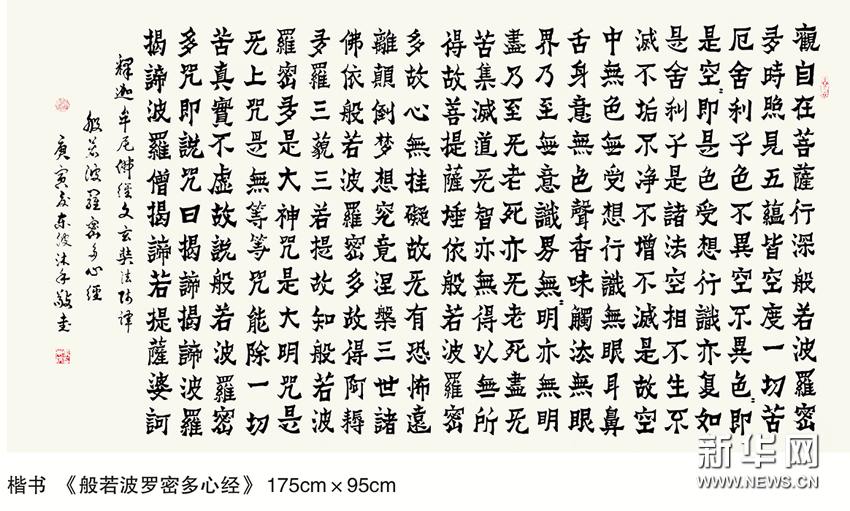 觀自在菩薩行深般若波羅密
多時照見五蘊皆空度一切苦
厄舍利子色不異空〻不異色〻即
是空〻即是色受想行識亦复如
是舍利子是諸法空相不生不
滅不垢不净不增不滅是故空
中無色無受想行識無眼耳鼻
舌身意無色聲香味觸法無眼
界乃至無意識界無〻明亦無明
盡乃至无老死亦无老死盡无
苦集滅道无智亦無得以無所
得故菩提薩埵依般若波羅密
多故心無挂礙故无有恐怖遠
離顛倒梦想究竟涅槃三世諸
佛依般若波羅密多故得阿耨
多羅三藐三若提故知般若波
羅密多是大神咒是大明咒是
无上咒是無等等咒能除一切
苦真實不虛故說般若波羅密
多咒即說咒曰揭諦揭諦波羅
揭諦波羅僧揭諦若提薩婆訶
釋迦牟尼佛經文玄奘法師譯
般若波羅密多心經
庚寅夏東波沐手敬書
新华网
WWW.NEWS.CN
楷书 《般若波罗密多心经》 175cm×95cm